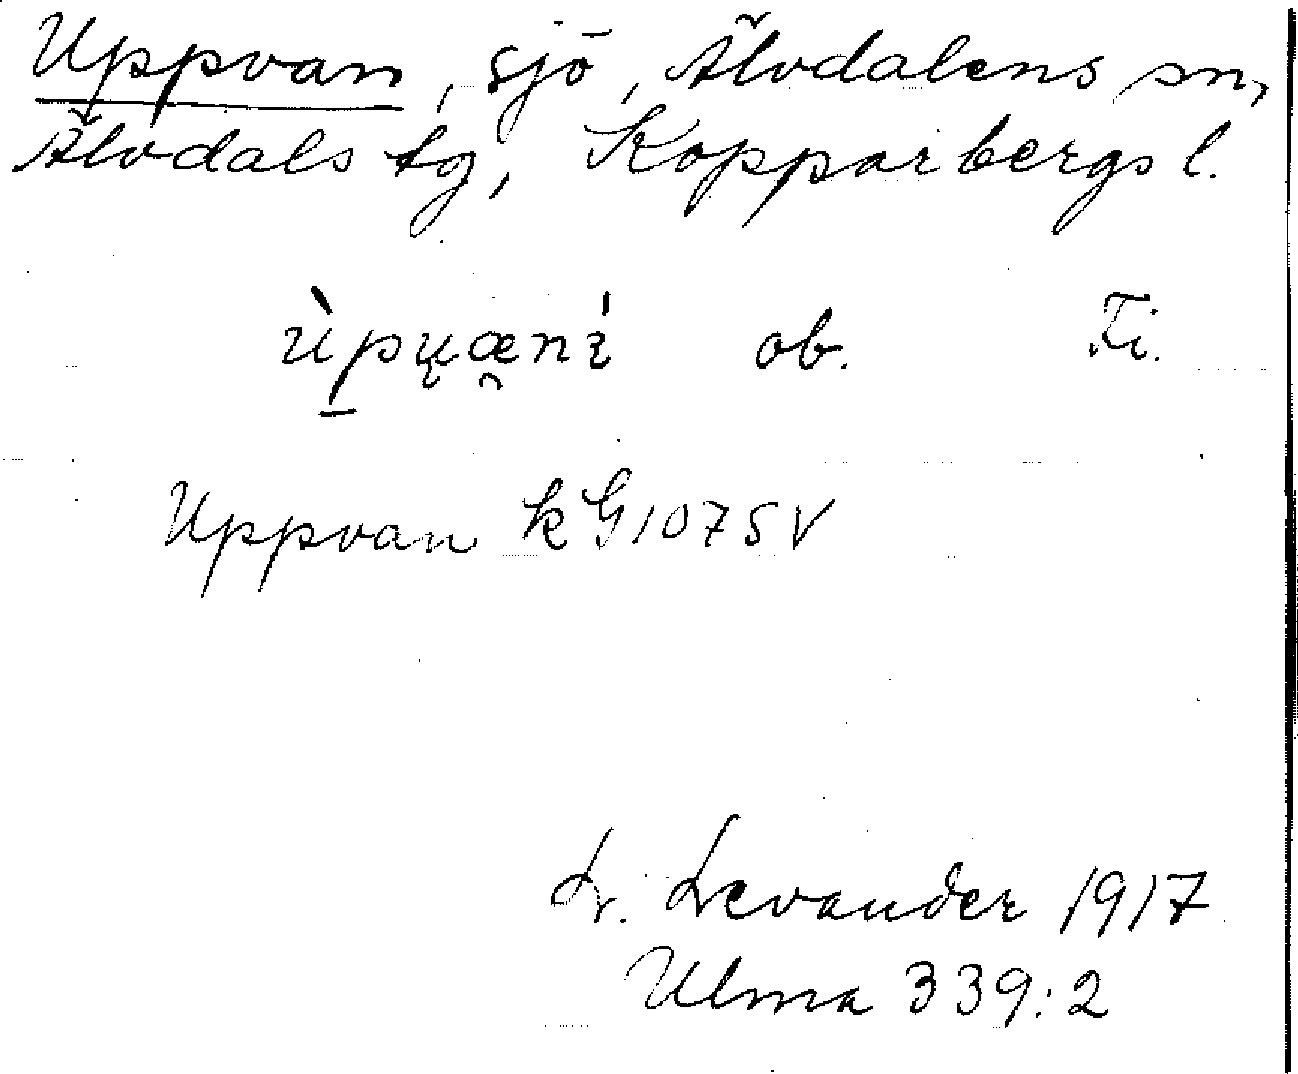 Uppvan, sjö, Älvdalens sn,
Älvdals tg, Kopparbergs l.
ùpu̯æ̯nı̇́ ob. Fi.
Uppvan kG1075V
L. Levander 1917
Ulma 339:2